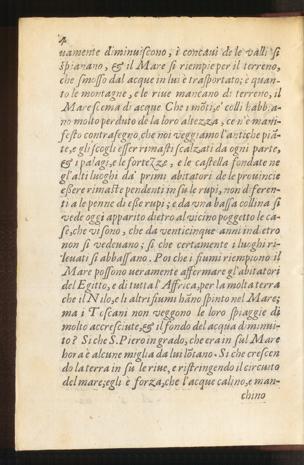 4
uamente diminuiscono, i concaui de le valli si
spianano, & il Mare si riempie per il terreno,
che smosso dal acque in lui è trasportato; è quan-
to le montagne, e le riue mancano di terreno, il
Mare scema di acque Che i mõti, e' colli habbia-
no molto perduto de la loro altezza, ce n'è mani-
festo contrasegno, che noi veggiamo l'antiche piã-
te, e gli scogli esser rimasti scalzati da ogni parte,
& i palagi, e le fortezze, e le castella fondate ne
gl'alti luoghi da' primi abitatori de le prouincie
eßere rimaste pendenti in su le rupi, non diferen-
ti a le penne di eße rupi; e da vna bassa collina si
vede oggi apparito dietro al vicino poggetto le ca-
se, che vi sono, che da venticinque anni indietro
non si vedeuano; si che certamente i luoghi ri-
leuati si abbassano. Poi che i fiumi riempiono il
Mare possono ueramente affermare gl'abitatori
del Egitto, e di tutta l'Affrica, per la molta terra
che il Nilo, e li altri fiumi hãno spinto nel Mare;
ma i Toscani non veggono le loro spiaggie di
molto accresciute, & il fondo del acqua diminui-
to? Si che S. Piero in grado, che era in sul Mare
hora è alcune miglia da lui lõtano. Si che crescen
do la terra in su le riue, e ristringendo il circuito
del mare; egli è forza, che l'acque calino, e man-
chino